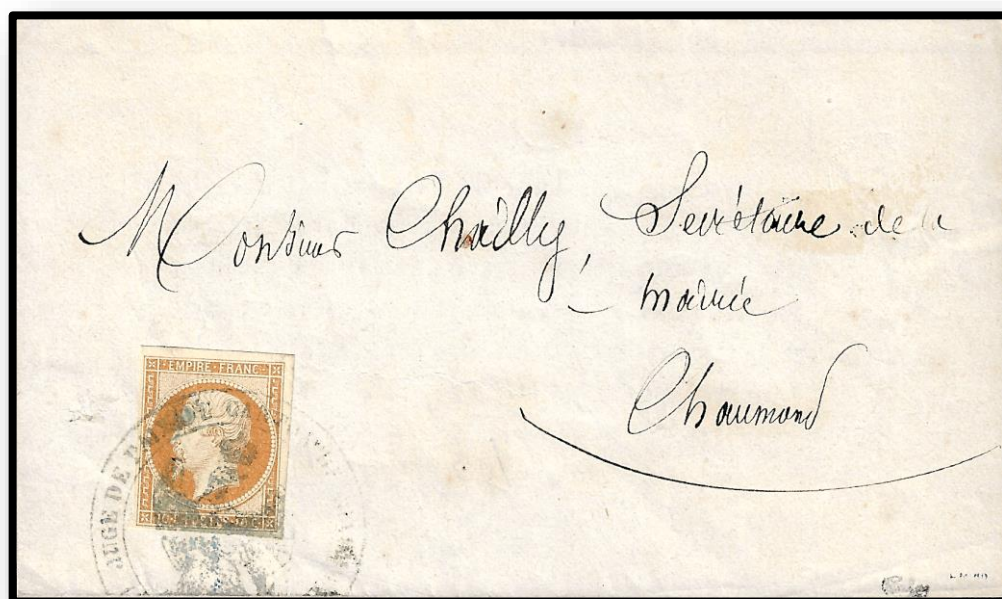 Monsieur Chailly, Secrétaire de la
mairie
Chaumond
EMPIRE FRANC
JUGE DE